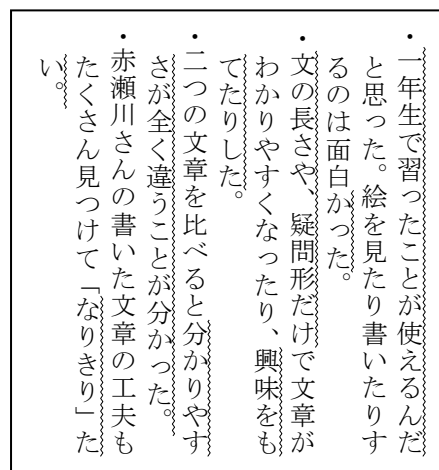 ・一年生で習ったことが使えるんだ
と思った。絵を見たり書いたりす
るのは面白かった。
・文の長さや、疑問形だけで文章が
わかりやすくなったり、興味をも
てたりした。
・二つの文章を比べると分かりやす
さが全く違うことが分かった。
・赤瀬川さんの書いた文章の工夫も
たくさん見つけて「なりきり」た
い。